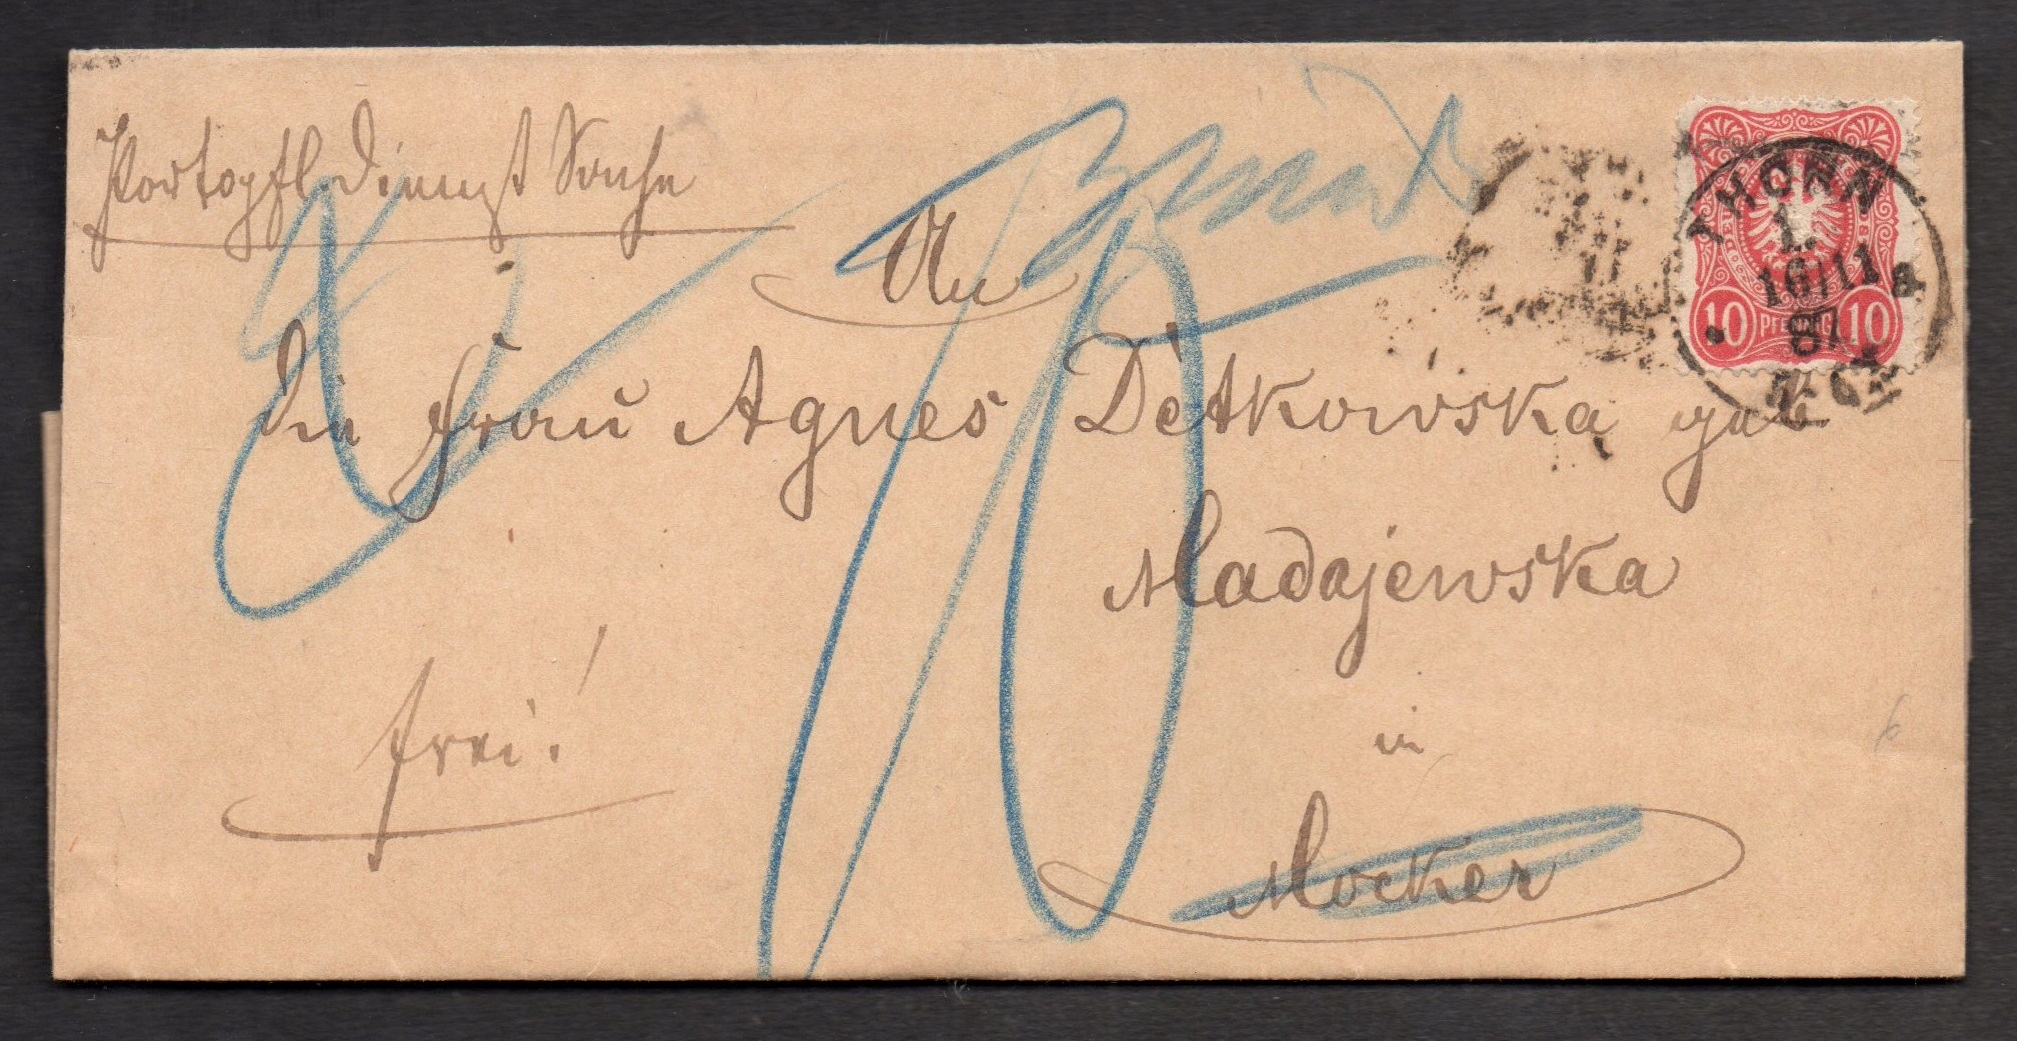 Portopfl. Dienst Sache
An
die Frau Agnes Dètkowska geb
Madajewska
in
Mocker
frei!
10
THORN
1.
16/11 a
87
10 PFENNIG 10